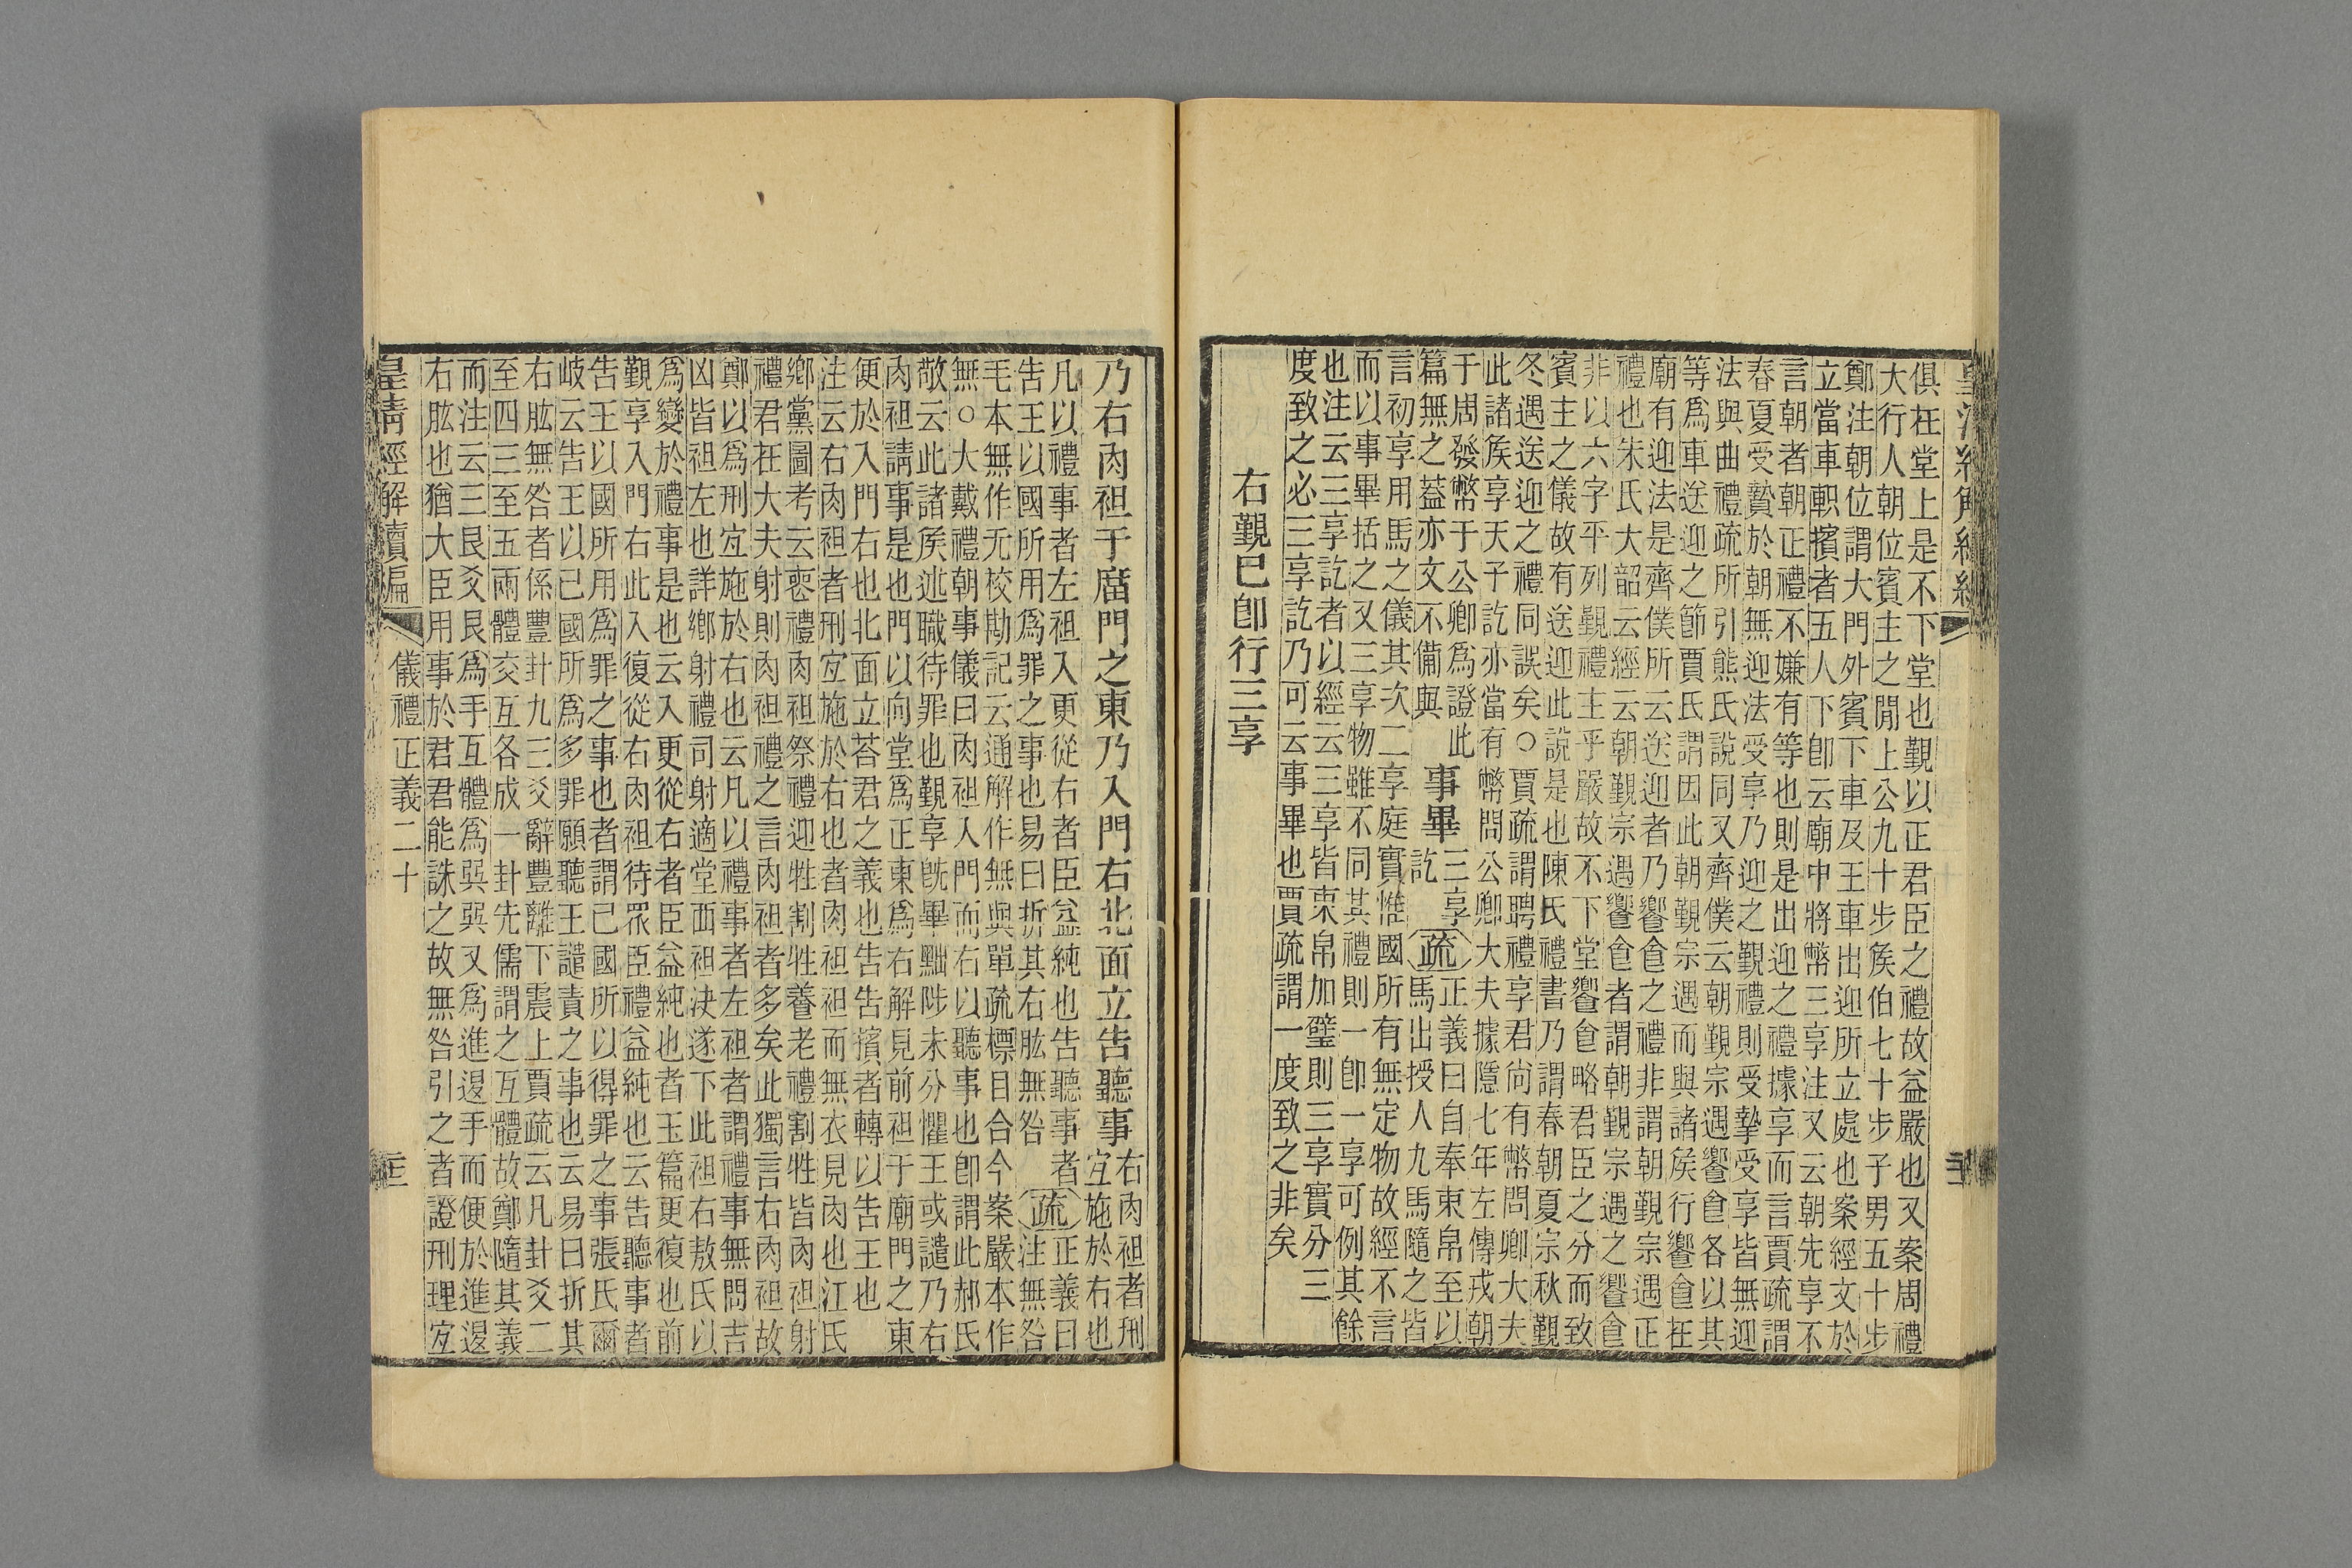 皇清經解續編
俱在堂上是不下堂也覲以正君臣之禮故益嚴也又案周禮
大行人朝位賓主之閒上公九十步矦伯七十步子男五十步
鄭注朝位謂大門外賓下車及王車出迎所立處也案經文於
立當車軹擯者五人下卽云廟中將幣三享注又云朝先享不
言朝者朝正禮不嫌有等也則是出迎之禮據享而言賈疏謂
春夏受贄於朝無迎法受享乃迎之覲禮則受摯受享皆無迎
法與曲禮疏所引熊氏說同又齊僕云朝覲宗遇饗食各以其
等爲車送迎之節賈氏謂因此朝覲宗遇而與諸矦行饗食在
廟有迎法是齊僕所云送迎者乃饗食之禮非謂朝覲宗遇正
禮也朱氏大韶云經云朝覲宗遇饗食者謂朝覲宗遇之饗食
非以六字平列覲禮主乎嚴故不下堂饗食略君臣之分而致
賓主之儀故有送迎此說是也陳氏禮書乃謂春朝夏宗秋覲
冬遇送迎之禮同誤矣○賈疏謂聘禮享君尙有幣問卿大夫
此諸矦享天子訖亦當有幣問公卿大夫據隱七年左傳戎朝
于周發幣于公卿爲證此
篇無之葢亦文不備與
事畢
三享
訖
疏
正義曰自奉束帛至以
馬出授人九馬隨之皆
言初享用馬之儀其次二享庭實惟國所有無定物故經不言
而以事畢括之又三享物雖不同其禮則一卽一享可例其餘
也注云三享訖者以經云三享皆束帛加璧則三享實分三
度致之必三享訖乃可云事畢也賈疏謂一度致之非矣
右覲已卽行三享
乃右肉袒于廟門之東乃入門右北面立告聽事
右肉袒者刑
宜施於右也
凡以禮事者左袒入更從右者臣益純也告聽事者
告王以國所用爲罪之事也易曰折其右肱無咎
疏
正義曰
注無咎
毛本無作无校勘記云通解作無與單疏標目合今案嚴本作
無○大戴禮朝事儀曰肉袒入門而右以聽事也卽謂此郝氏
敬云此諸矦述職待罪也覲享旣畢黜陟未分懼王或譴乃右
肉袒請事是也門以向堂爲正東爲右解見前袒于廟門之東
便於入門右也北面立荅君之義也告告擯者轉以告王也
注云右肉袒者刑宜施於右也者肉袒袒而無衣見肉也江氏
鄉黨圖考云䘮禮肉袒祭禮迎牲割牲養老禮割牲皆肉袒射
禮君在大夫射則肉袒禮之言肉袒者多矣此獨言右肉袒故
鄭以爲刑宜施於右也云凡以禮事者左袒者謂禮事無問吉
凶皆袒左也詳鄉射禮司射適堂西袒決遂下此袒右敖氏以
爲變於禮事是也云入更從右者臣益純也者玉篇更復也前
覲享入門右此入復從右肉袒待罪臣禮益純也云告聽事者
告王以國所用爲罪之事也者謂己國所以得罪之事張氏爾
岐云告王以已國所爲多罪願聽王譴責之事也云易曰折其
右肱無咎者係豐卦九三爻辭豐離下震上賈疏云凡卦爻二
至四三至五兩體交互各成一卦先儒謂之互體故鄭隨其義
而注云三艮爻艮爲手互體爲巽巽又爲進退手而便於進退
右肱也猶大臣用事於君君能誅之故無咎引之者證刑理宜
皇清經解續編
儀禮正義二十